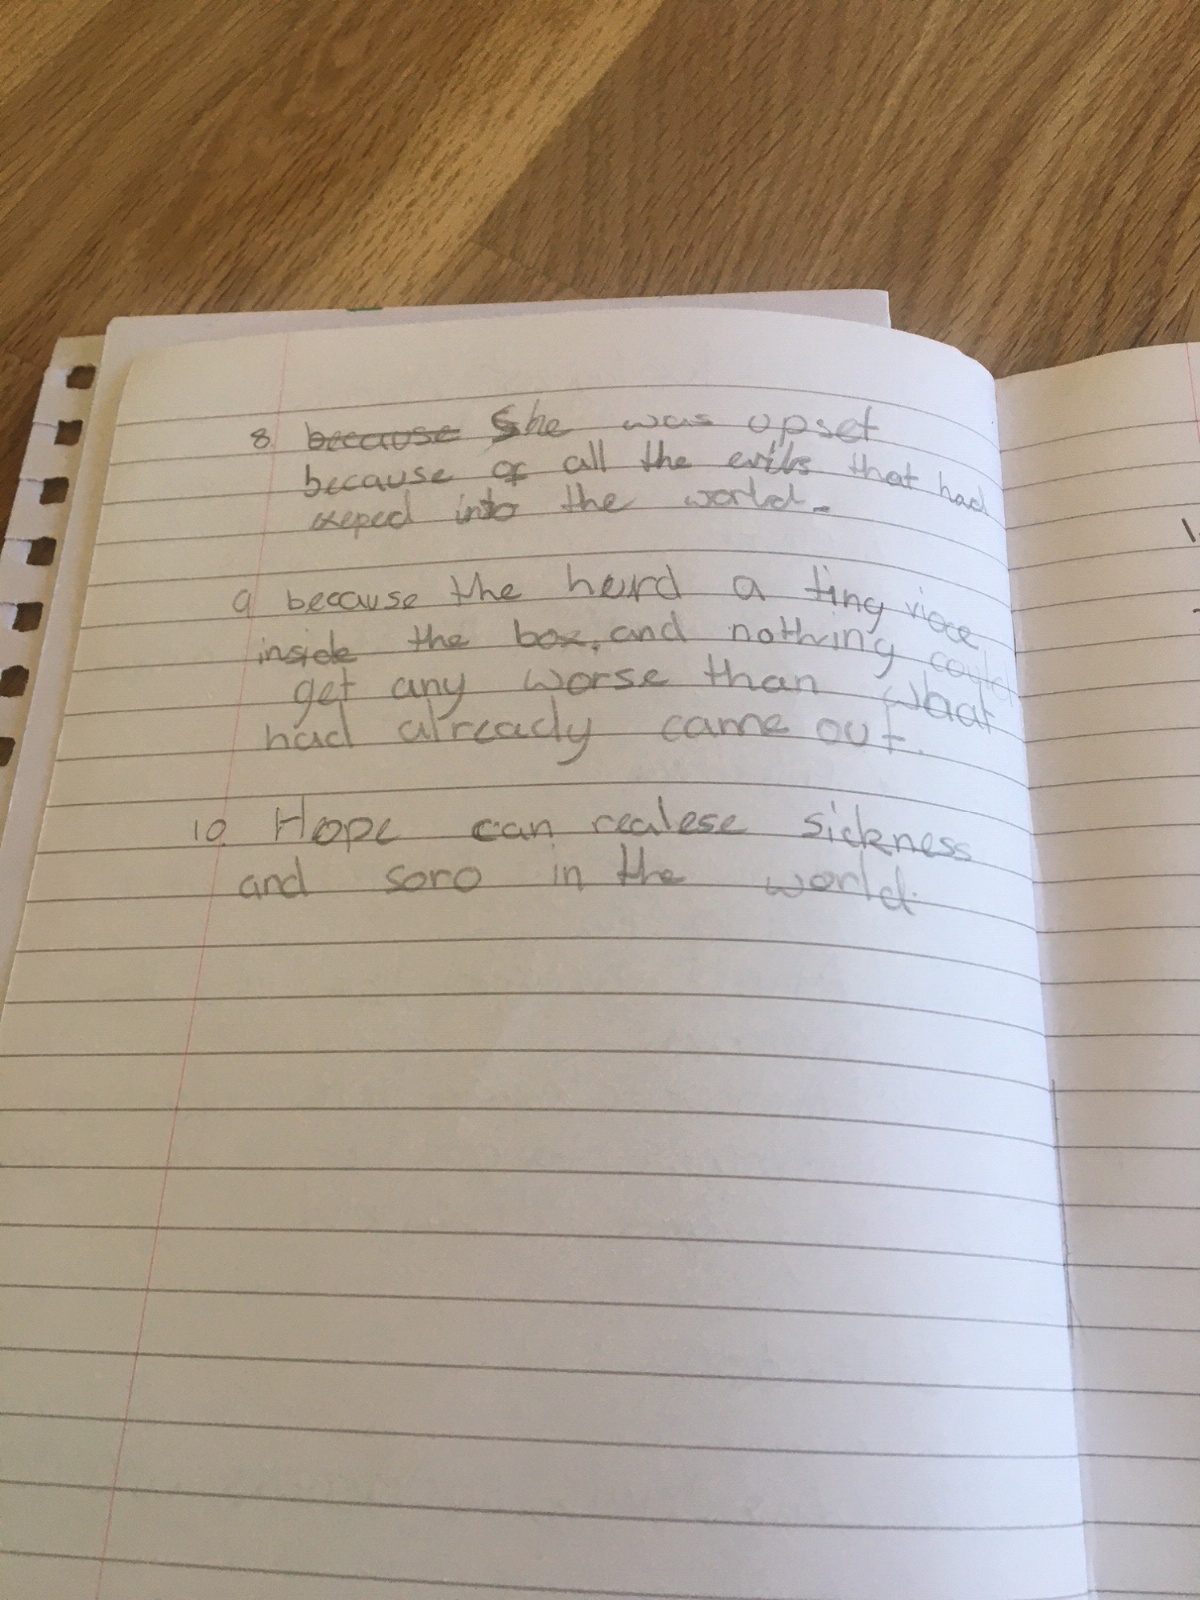 8. because She was upset
because of all the evils that had
into the world.
9 because the herd a ting vioce
inside the box, and nothing could
get any worse than what
had already came out.
10. Hope can realese sickness
and soro in the world.